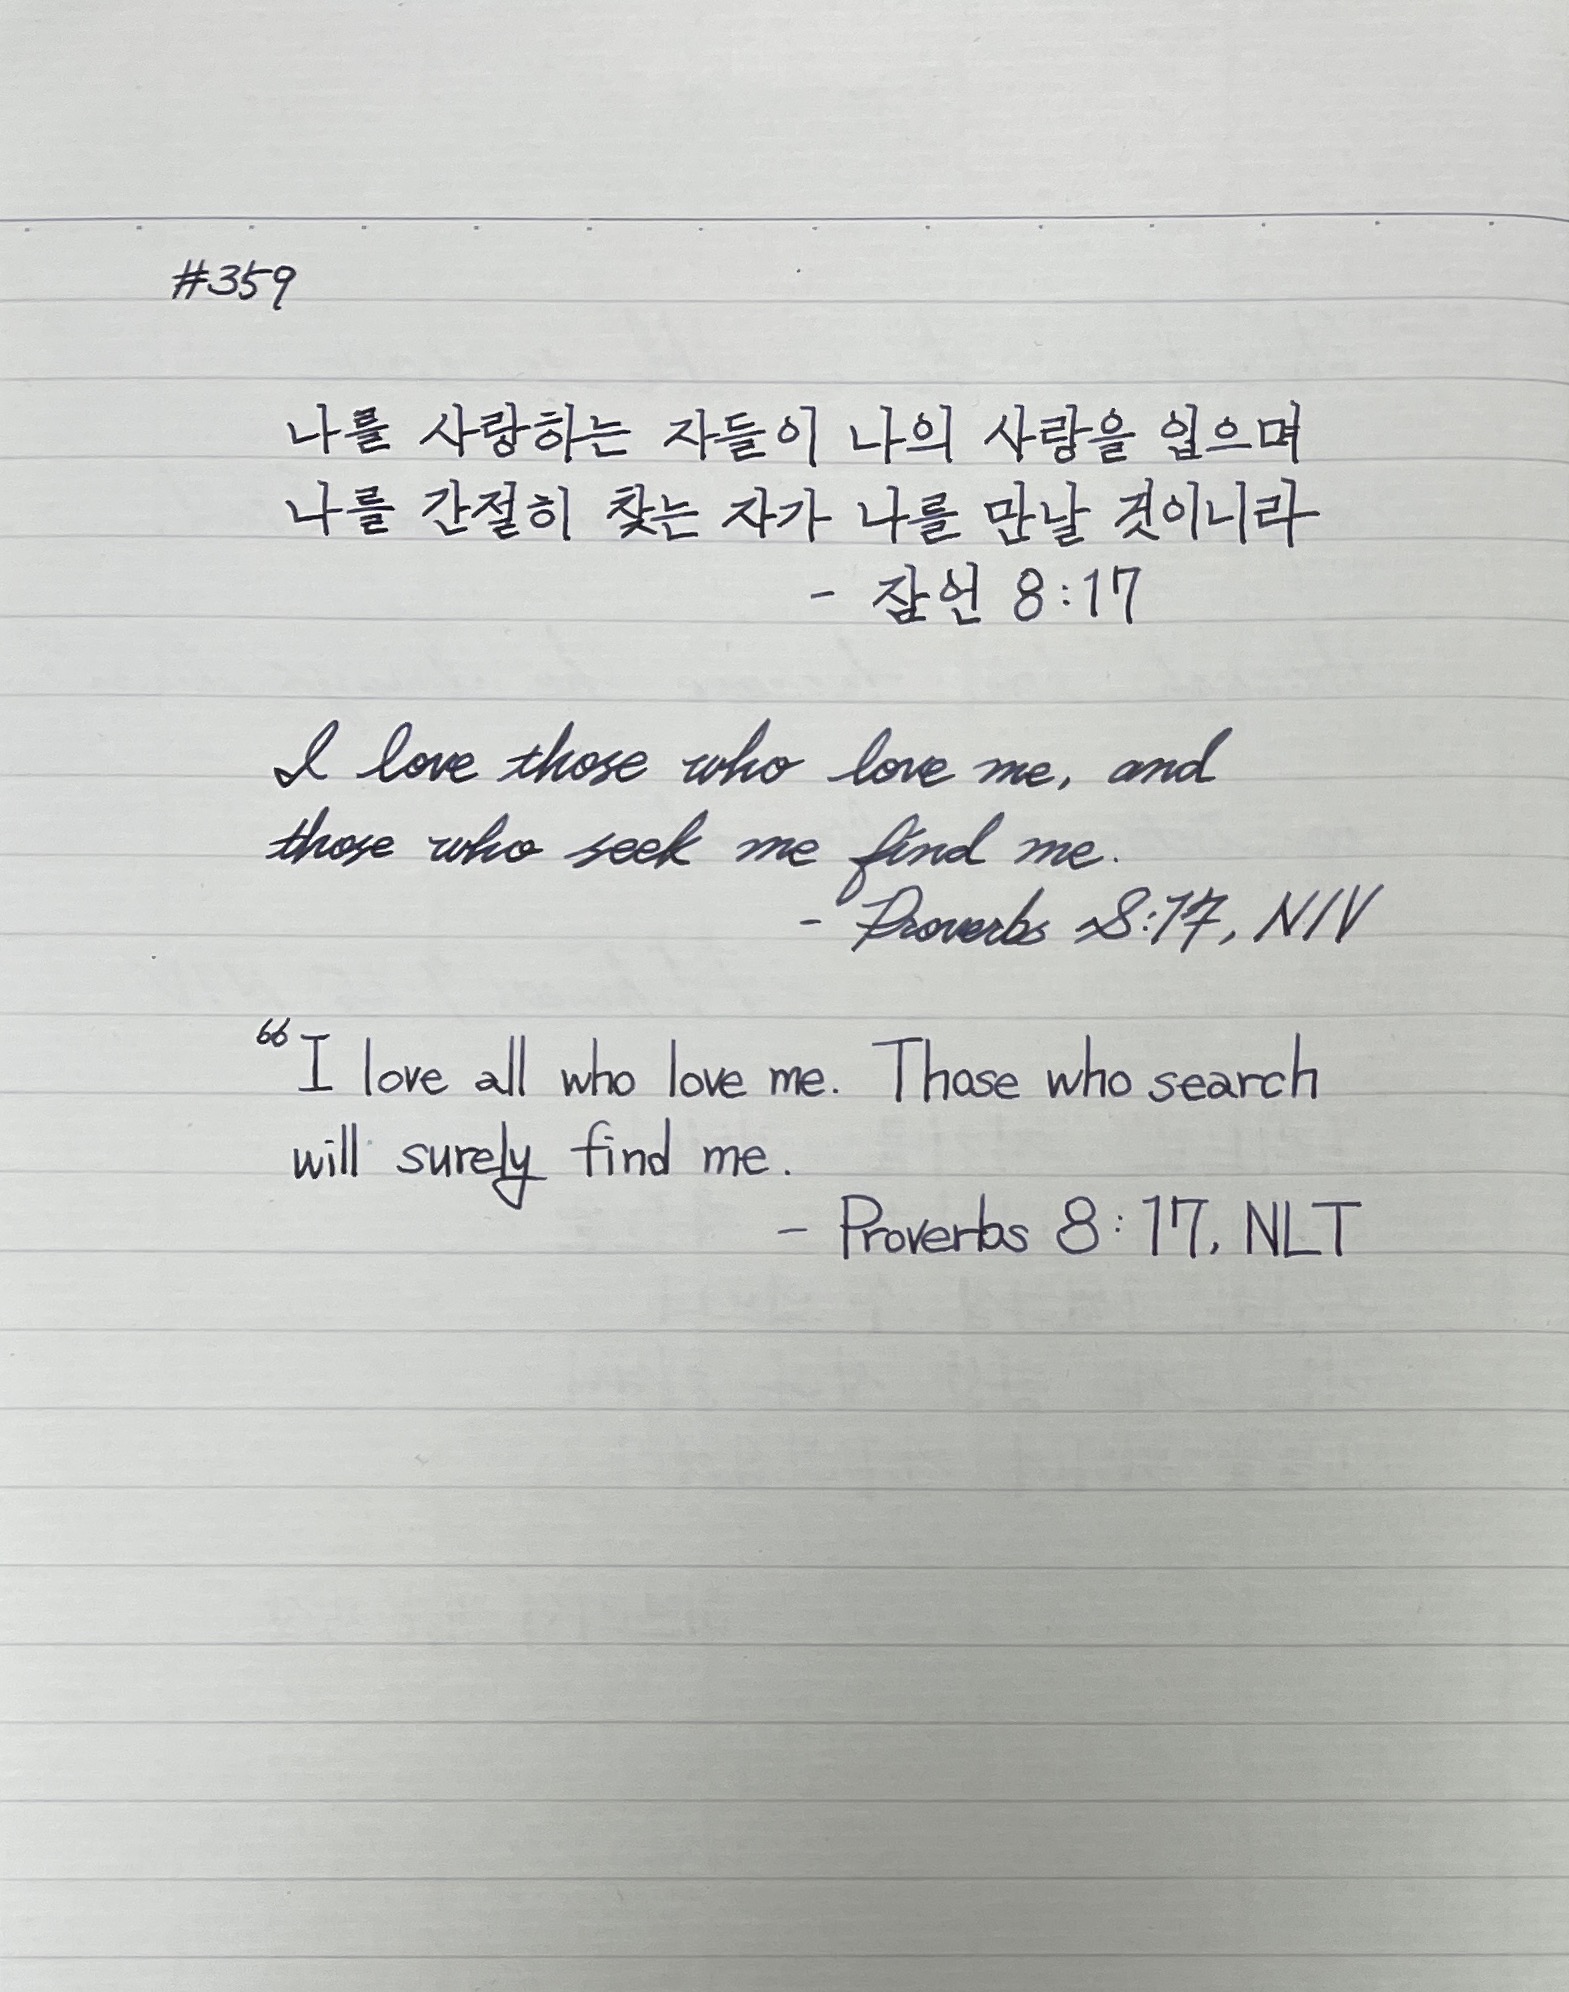 #359
나를 사랑하는 자들이 나의 사랑을 입으며
나를 간절히 찾는 자가 나를 만날 것이니라
- 잠언 8:17
I love those who love me, and
those who seek me find me.
- Proverbs 8:17, NIV
“I love all who love me. Those who search
will surely find me.
- Proverbs 8:17, NLT